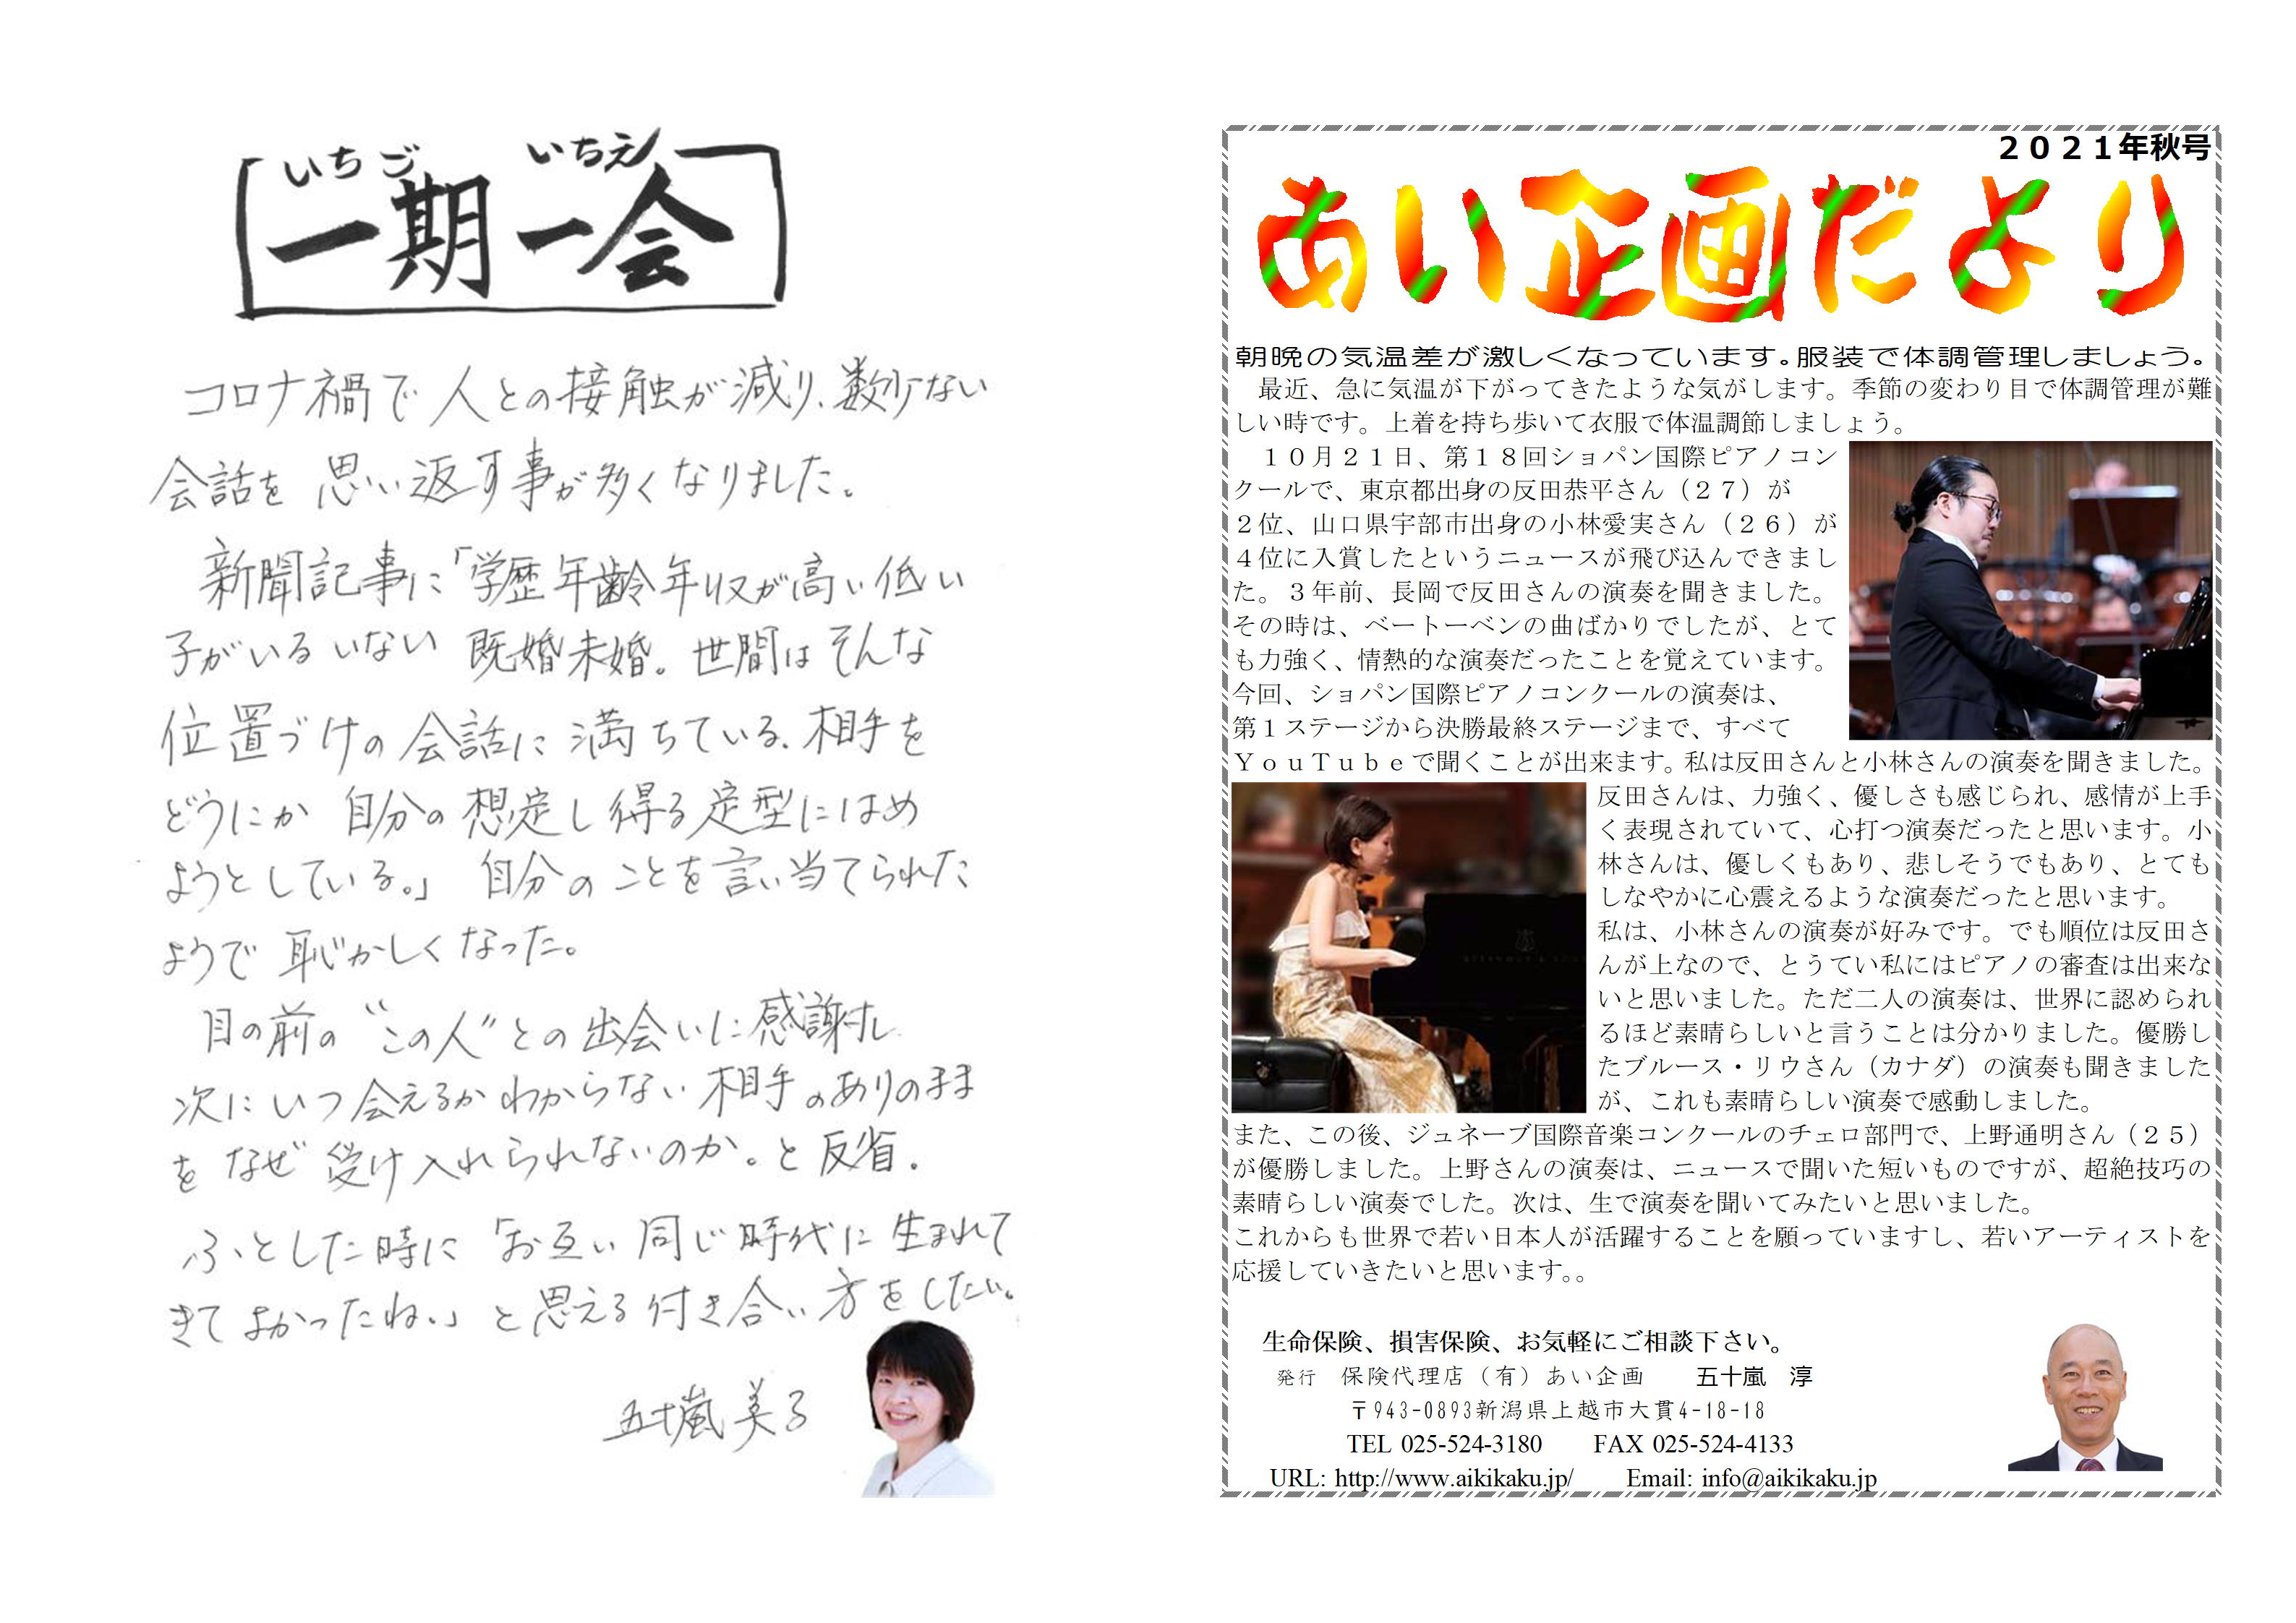 いちご いちえ
一期一会
コロナ禍で人との接触が減り、数少ない
会話を思い返す事が多くなりました。
新聞記事に「学歴年齢年収が高い低い
子がいるいない 既婚未婚。世間はそんな
位置づけの会話に満ちている。相手を
どうにか自分の想定し得る定型にはめ
ようとしている。」自分のことを言い当てられた
ようで恥かしくなった。
目の前の“この人”との出会いに感謝し
次にいつ会えるかわからない相手のありのまま
をなぜ受け入れられないのか。と反省。
ふとした時に「お互い同じ時代に生まれて
きてよかったね。」と思える付き合い方をしたい。
五十嵐美る
2021年秋号
あい企画だより
朝晩の気温差が激しくなっています。服装で体調管理しましょう。
最近、急に気温が下がってきたような気がします。季節の変わり目で体調管理が難
しい時です。上着を持ち歩いて衣服で体温調節しましょう。
10月21日、第18回ショパン国際ピアノコン
クールで、東京都出身の反田恭平さん(27)が
2位、山口県宇部市出身の小林愛実さん(26)が
4位に入賞したというニュースが飛び込んできまし
た。3年前、長岡で反田さんの演奏を聞きました。
その時は、ベートーベンの曲ばかりでしたが、とて
も力強く、情熱的な演奏だったことを覚えています。
今回、ショパン国際ピアノコンクールの演奏は、
第1ステージから決勝最終ステージまで、すべて
YouTubeで聞くことが出来ます。私は反田さんと小林さんの演奏を聞きました。
反田さんは、力強く、優しさも感じられ、感情が上手
く表現されていて、心打つ演奏だったと思います。小
林さんは、優しくもあり、悲しそうでもあり、とても
しなやかに心震えるような演奏だったと思います。
私は、小林さんの演奏が好みです。でも順位は反田さ
んが上なので、とうてい私にはピアノの審査は出来な
いと思いました。ただ二人の演奏は、世界に認められ
るほど素晴らしいと言うことは分かりました。優勝し
たブルース・リウさん(カナダ)の演奏も聞きました
が、これも素晴らしい演奏で感動しました。
また、この後、ジュネーブ国際音楽コンクールのチェロ部門で、上野通明さん(25)
が優勝しました。上野さんの演奏は、ニュースで聞いた短いものですが、超絶技巧の
素晴らしい演奏でした。次は、生で演奏を聞いてみたいと思いました。
これからも世界で若い日本人が活躍することを願っていますし、若いアーティストを
応援していきたいと思います。。
生命保険、損害保険、お気軽にご相談下さい。
発行 保険代理店(有)あい企画 五十嵐 淳
〒943-0893新潟県上越市大貫4-18-18
TEL 025-524-3180 FAX 025-524-4133
URL: http://www.aikikaku.jp/ Email: info@aikikaku.jp